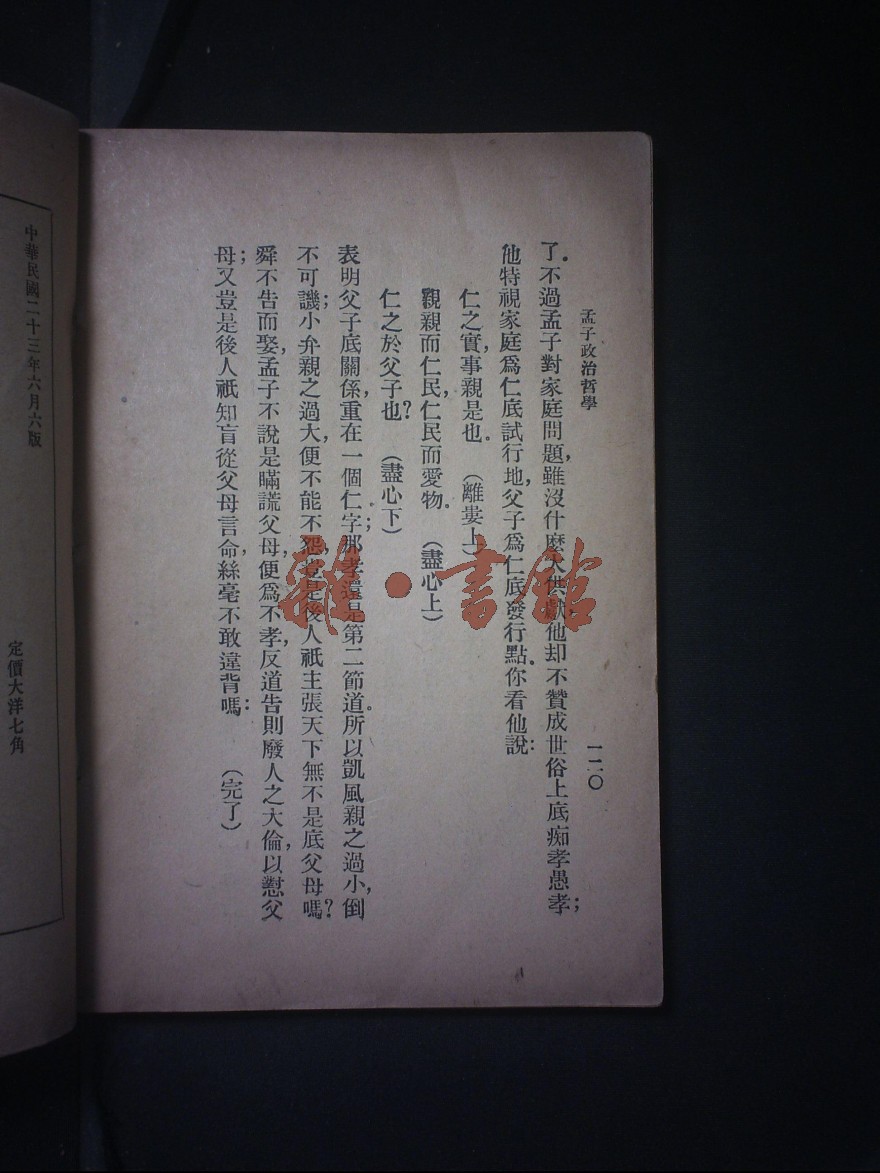 孟子政治哲學
一二〇
了。不過孟子對家庭問題,雖沒什麽大供獻,他却不贊成世俗上底痴孝愚孝;
他特視家庭爲仁底試行地,父子爲仁底發行點。你看他說:
仁之實,事親是也。(離婁上)
親親而仁民,仁民而愛物。(盡心上)
仁之於父子也?(盡心下)
表明父子底關係,重在一個仁字;那孝還是第二節道。所以凱風親之過小,倒
不可譏;小弁親之過大,便不能不怨,豈是後人祇主張天下無不是底父母嗎?
舜不告而娶,孟子不說是瞞謊父母,便爲不孝,反道告則廢人之大倫,以懟父
母;又豈是後人祇知盲從父母言命,絲毫不敢違背嗎:(完了)
中華民國二十三年六月六版
定價大洋七角
雜·書館